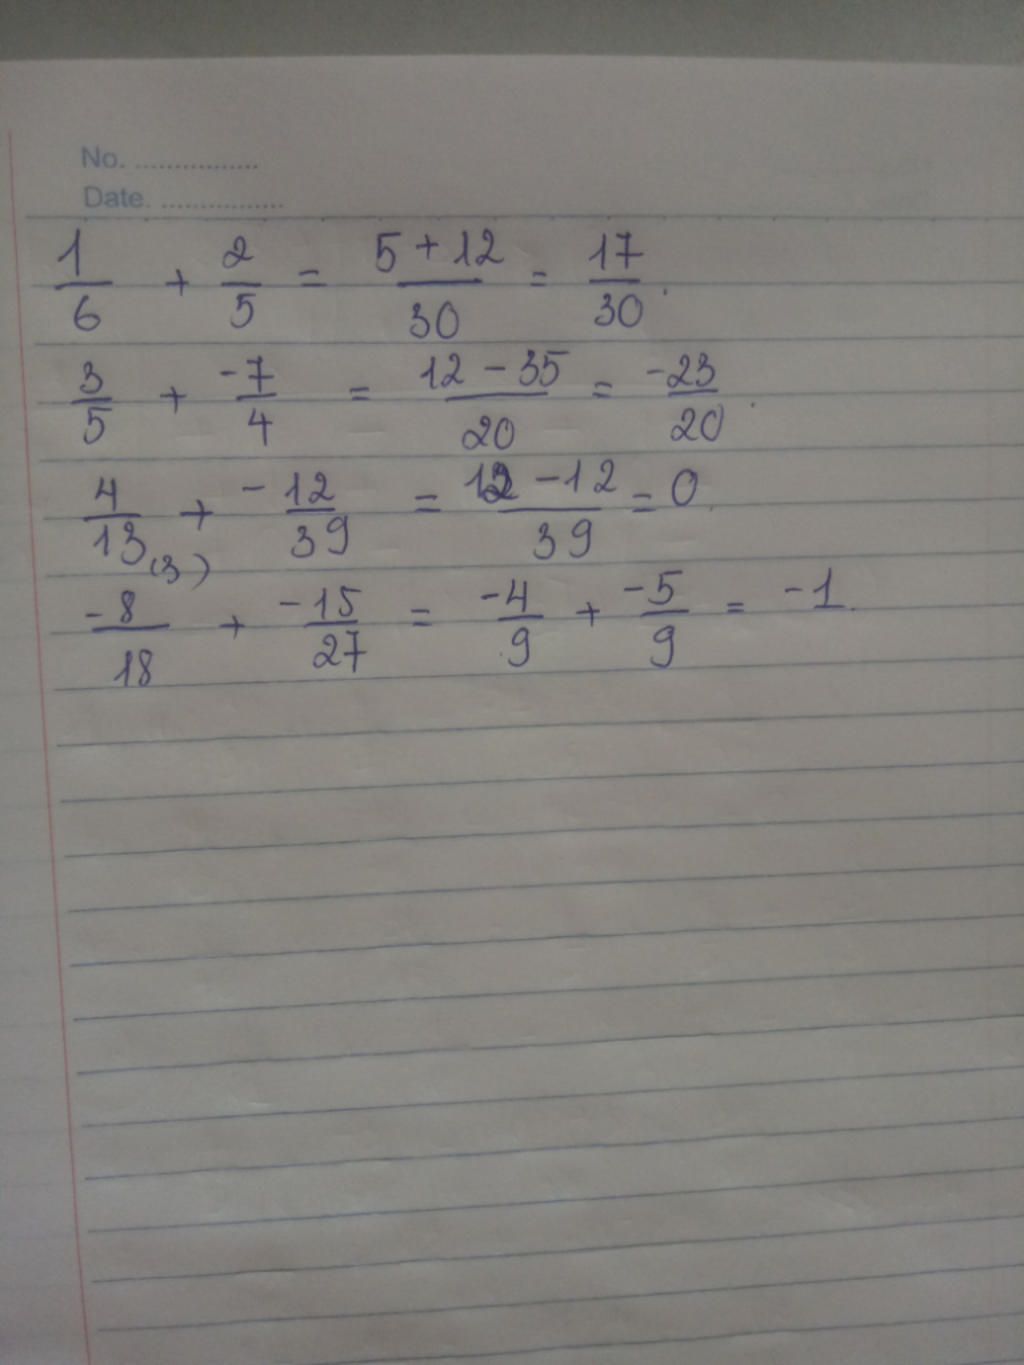 No. ................
Date. ................
1/6 + 2/5 = (5 + 12)/30 = 17/30.
3/5 + -7/4 = (12 - 35)/20 = -23/20.
4/13 (3) + -12/39 = (12 - 12)/39 = 0.
-8/18 + -15/27 = -4/9 + -5/9 = -1.